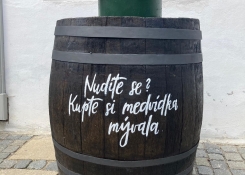 Nudíte se?
Kupte si medvídka
mývala